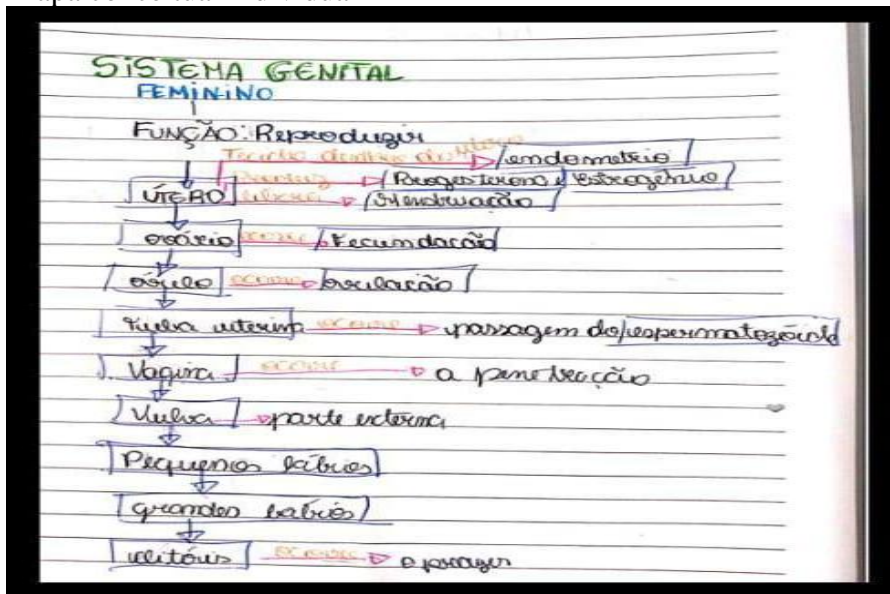 SISTEMA GENITAL
FEMININO
FUNÇÃO: Reproduzir
Tecido dentro do útero endometrio
Produz Progesterona e estrogênio
ÚTERO libera Menstruação
ovário ocorre Fecundação
óvulo ocorre ovulação
Tuba uterina ocorre passagem do espermatozóide
Vagina ocorre a penetracção
Vulva parte externa
Pequenos lábios
grandes labios
clitóris ocorre o prazer